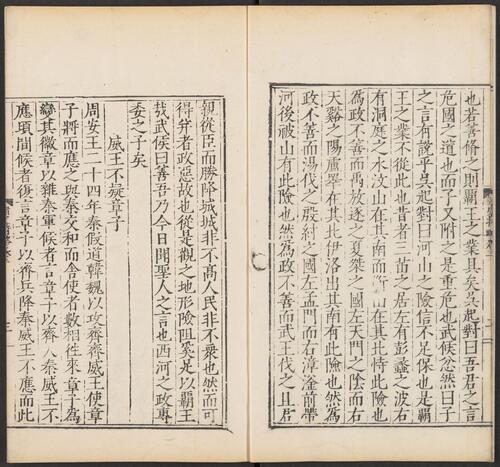 也若善脩之則覇王之業具矣吳起對曰吾君之言
危國之道也而子又附之是重危也武侯忿然曰子
之言有說乎吳起對曰河山之險信不足保也是覇
王之業不從此也昔者三苗之居左有彭蠡之波右
有洞庭之水汶山在其南而衡山在其北恃此險也
為政不善而禹放逐之夏桀之國左天門之陰而右
天谿之陽廬睪在其北伊洛出其南有此險也然為
政不善而湯伐之殷紂之國左孟門而右漳滏前帶
河後被山有此險也然為政不善而武王伐之且君
親從臣而勝降城城非不髙人民非不衆也然而可
得并者政惡故也從是觀之地形險阻奚足以覇王
哉武侯曰善吾乃今日聞聖人之言也西河之政專
委之子矣
威王不疑章子
周安王二十四年秦假道韓魏以攻齊齊威王使章
子將而應之與秦交和而舍使者數相徃來章子為
變其徽章以雜秦軍候者言章子以齊入秦威王不
應頃間候者復言章子以齊兵降秦威王不應而此